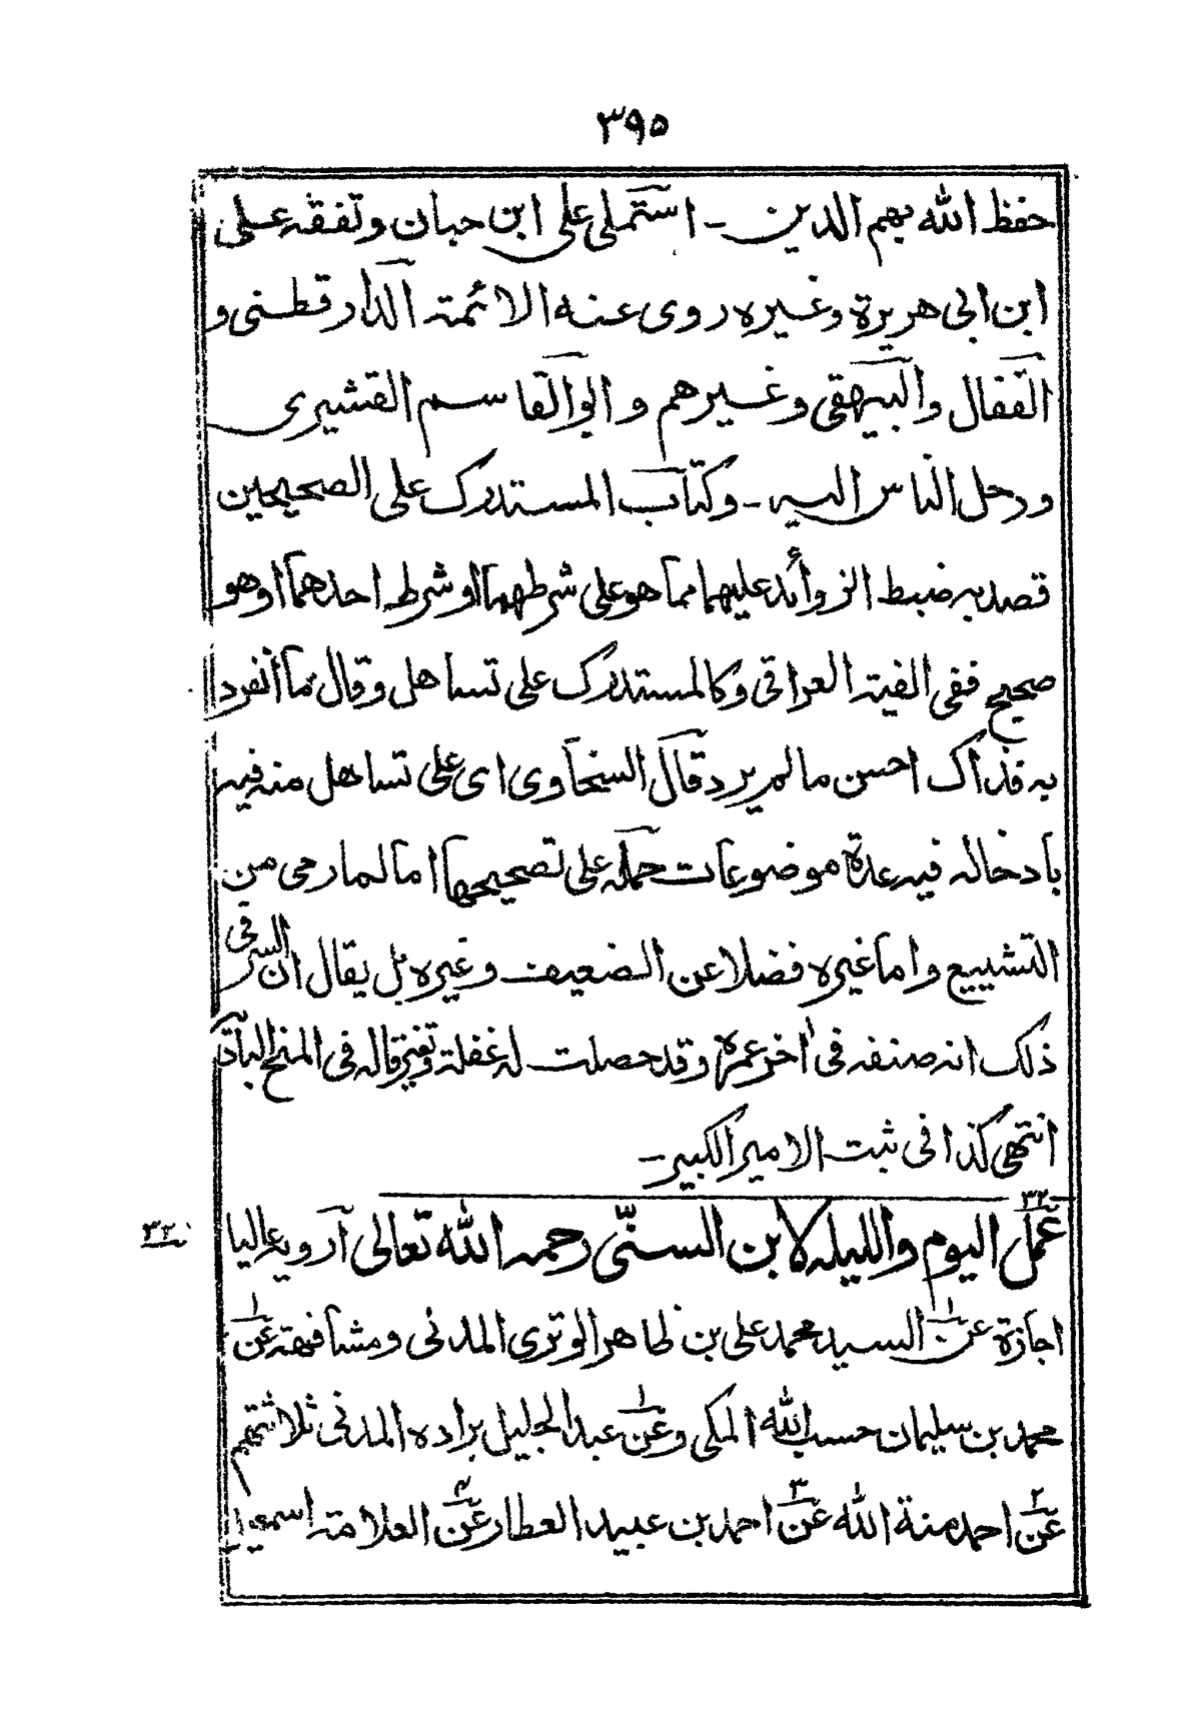 ٣٩٥
حفظ الله بهم الدين ـ استملى على ابن حبان وتفقه على
ابن ابى هريرة وغيره روى عنه الائمة الدارقطنى و
القفال والبيهقى وغيرهم وابوالقاسم القشيرى
ورحل الناس اليه ـ وكتاب المستدرك على الصحيحين
قصد به ضبط الزوائد عليهما مما هو على شرطهما او شرط احدهما او هو
صحيح ففى الفية العراقى وكالمستدرك على تساهل وقال ما انفرد
به فذاك احسن مالم يرد قال السخاوى اى على تساهل منه فيه
بادخاله فيه عدة موضوعات حمله على تصحيحها اما لما رمى من
التشييع واما غيره فضلا عن الضعيف وغيره بل يقال ان السر فى
ذلك انه صنفه فى اخر عمره وقد حصلت له غفلة وتغير قاله فى المنح البادية
انتهى كذا فى ثبت الامير الكبير ـ
٣٢
عمل اليوم والليله لابن السنّى رحمه الله تعالى ارويه عاليا
٣٢
اجازة عن١ السيد محمد على بن ظاهر الوترى المدنى ومشافهة عن١
محمد بن سليمان حسب الله المكى وعن١ عبد الجليل براده المدنى ثلاثتهم
عن٢ احمد منة الله عن٣ احمد بن عبيد العطار عن٤ العلامة اسمعيل